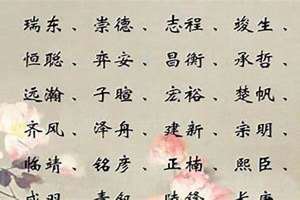 瑞东、崇德、志程、竣生、
恒聪、弈安、昌衡、承哲、
远瀚、子暄、宏裕、楚帆、
齐风、泽舟、建新、宗明、
临靖、铭彦、正楠、熙臣、